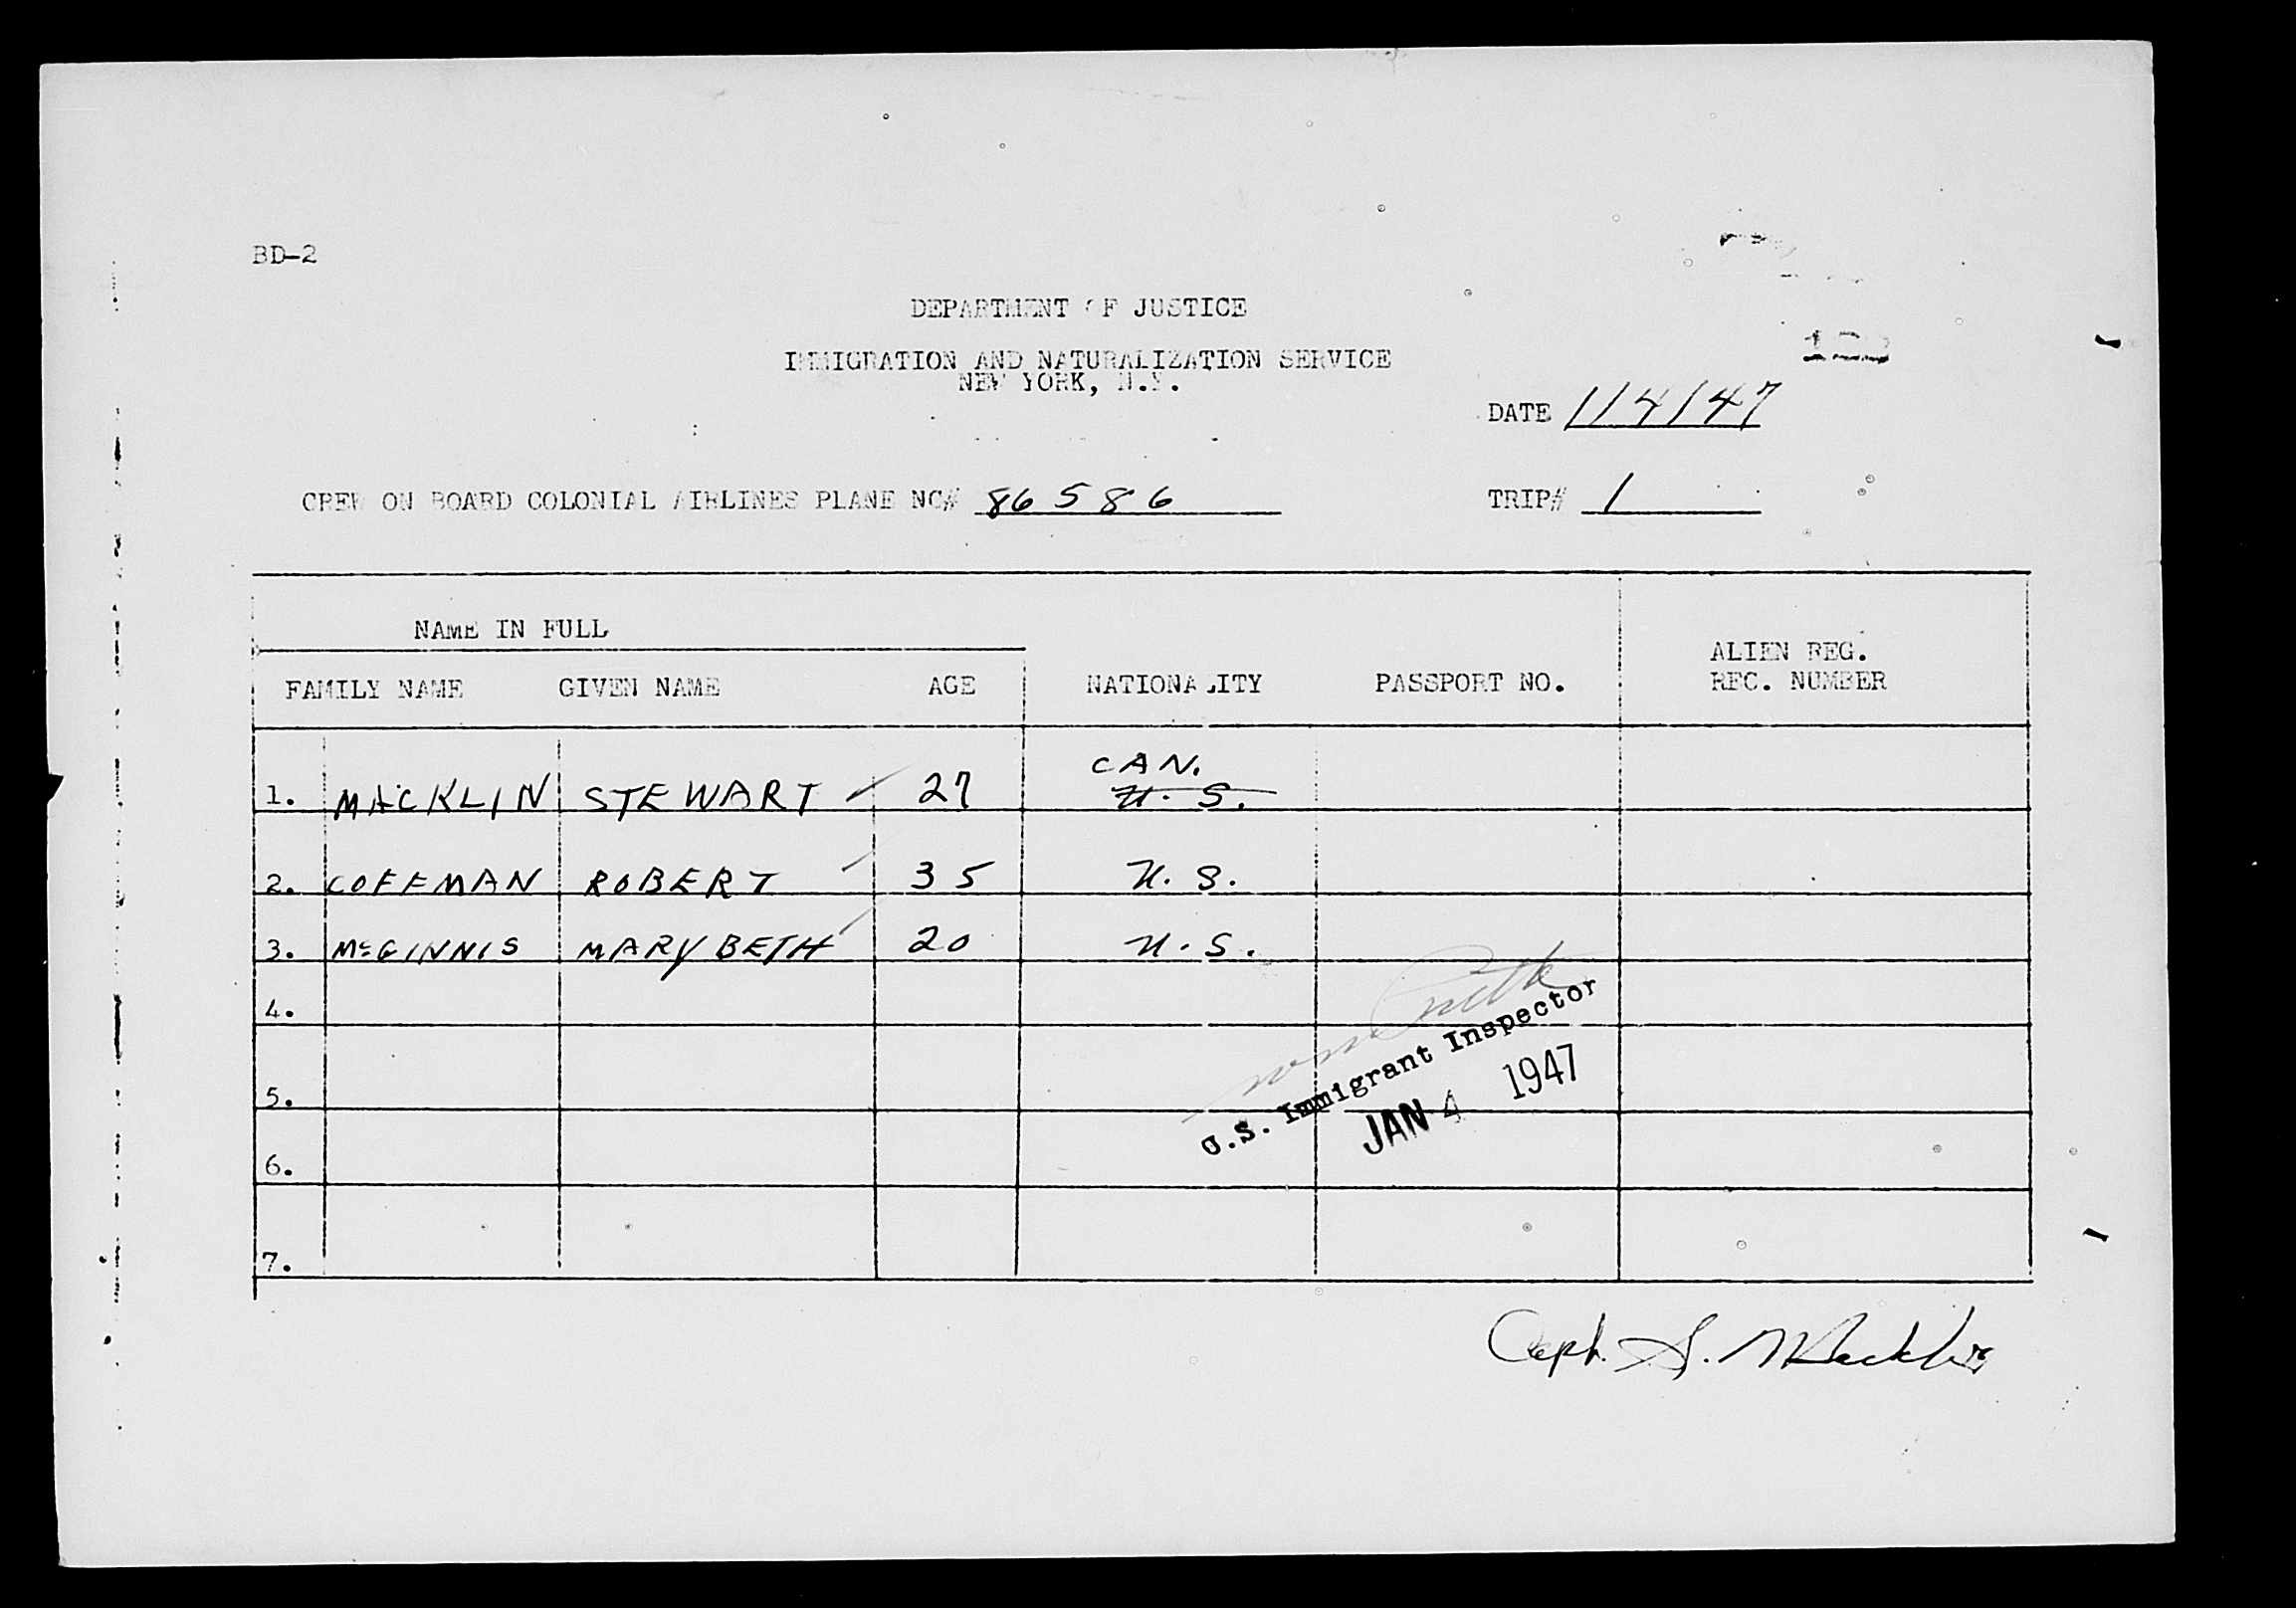 BD-2
DEPARTMENT OF JUSTICE
IMMIGRATION AND NATURALIZATION SERVICE
NEW YORK, N.Y.
DATE 1/4/47
CREW ON BOARD COLONIAL AIRLINES PLANE NC# 86586 TRIP# 1
NAME IN FULL
FAMILY NAME GIVEN NAME AGE NATIONALITY PASSPORT NO. ALIEN REG. REC. NUMBER
CAN.
1. MACKLIN STEWART 27 U.S.
2. COFFMAN ROBERT 35 U.S.
3. McGINNIS MARY BETH 20 U.S.
4.
U.S. Immigrant Inspector
5.
JAN 4 1947
6.
7.
Capt. S. Macklin